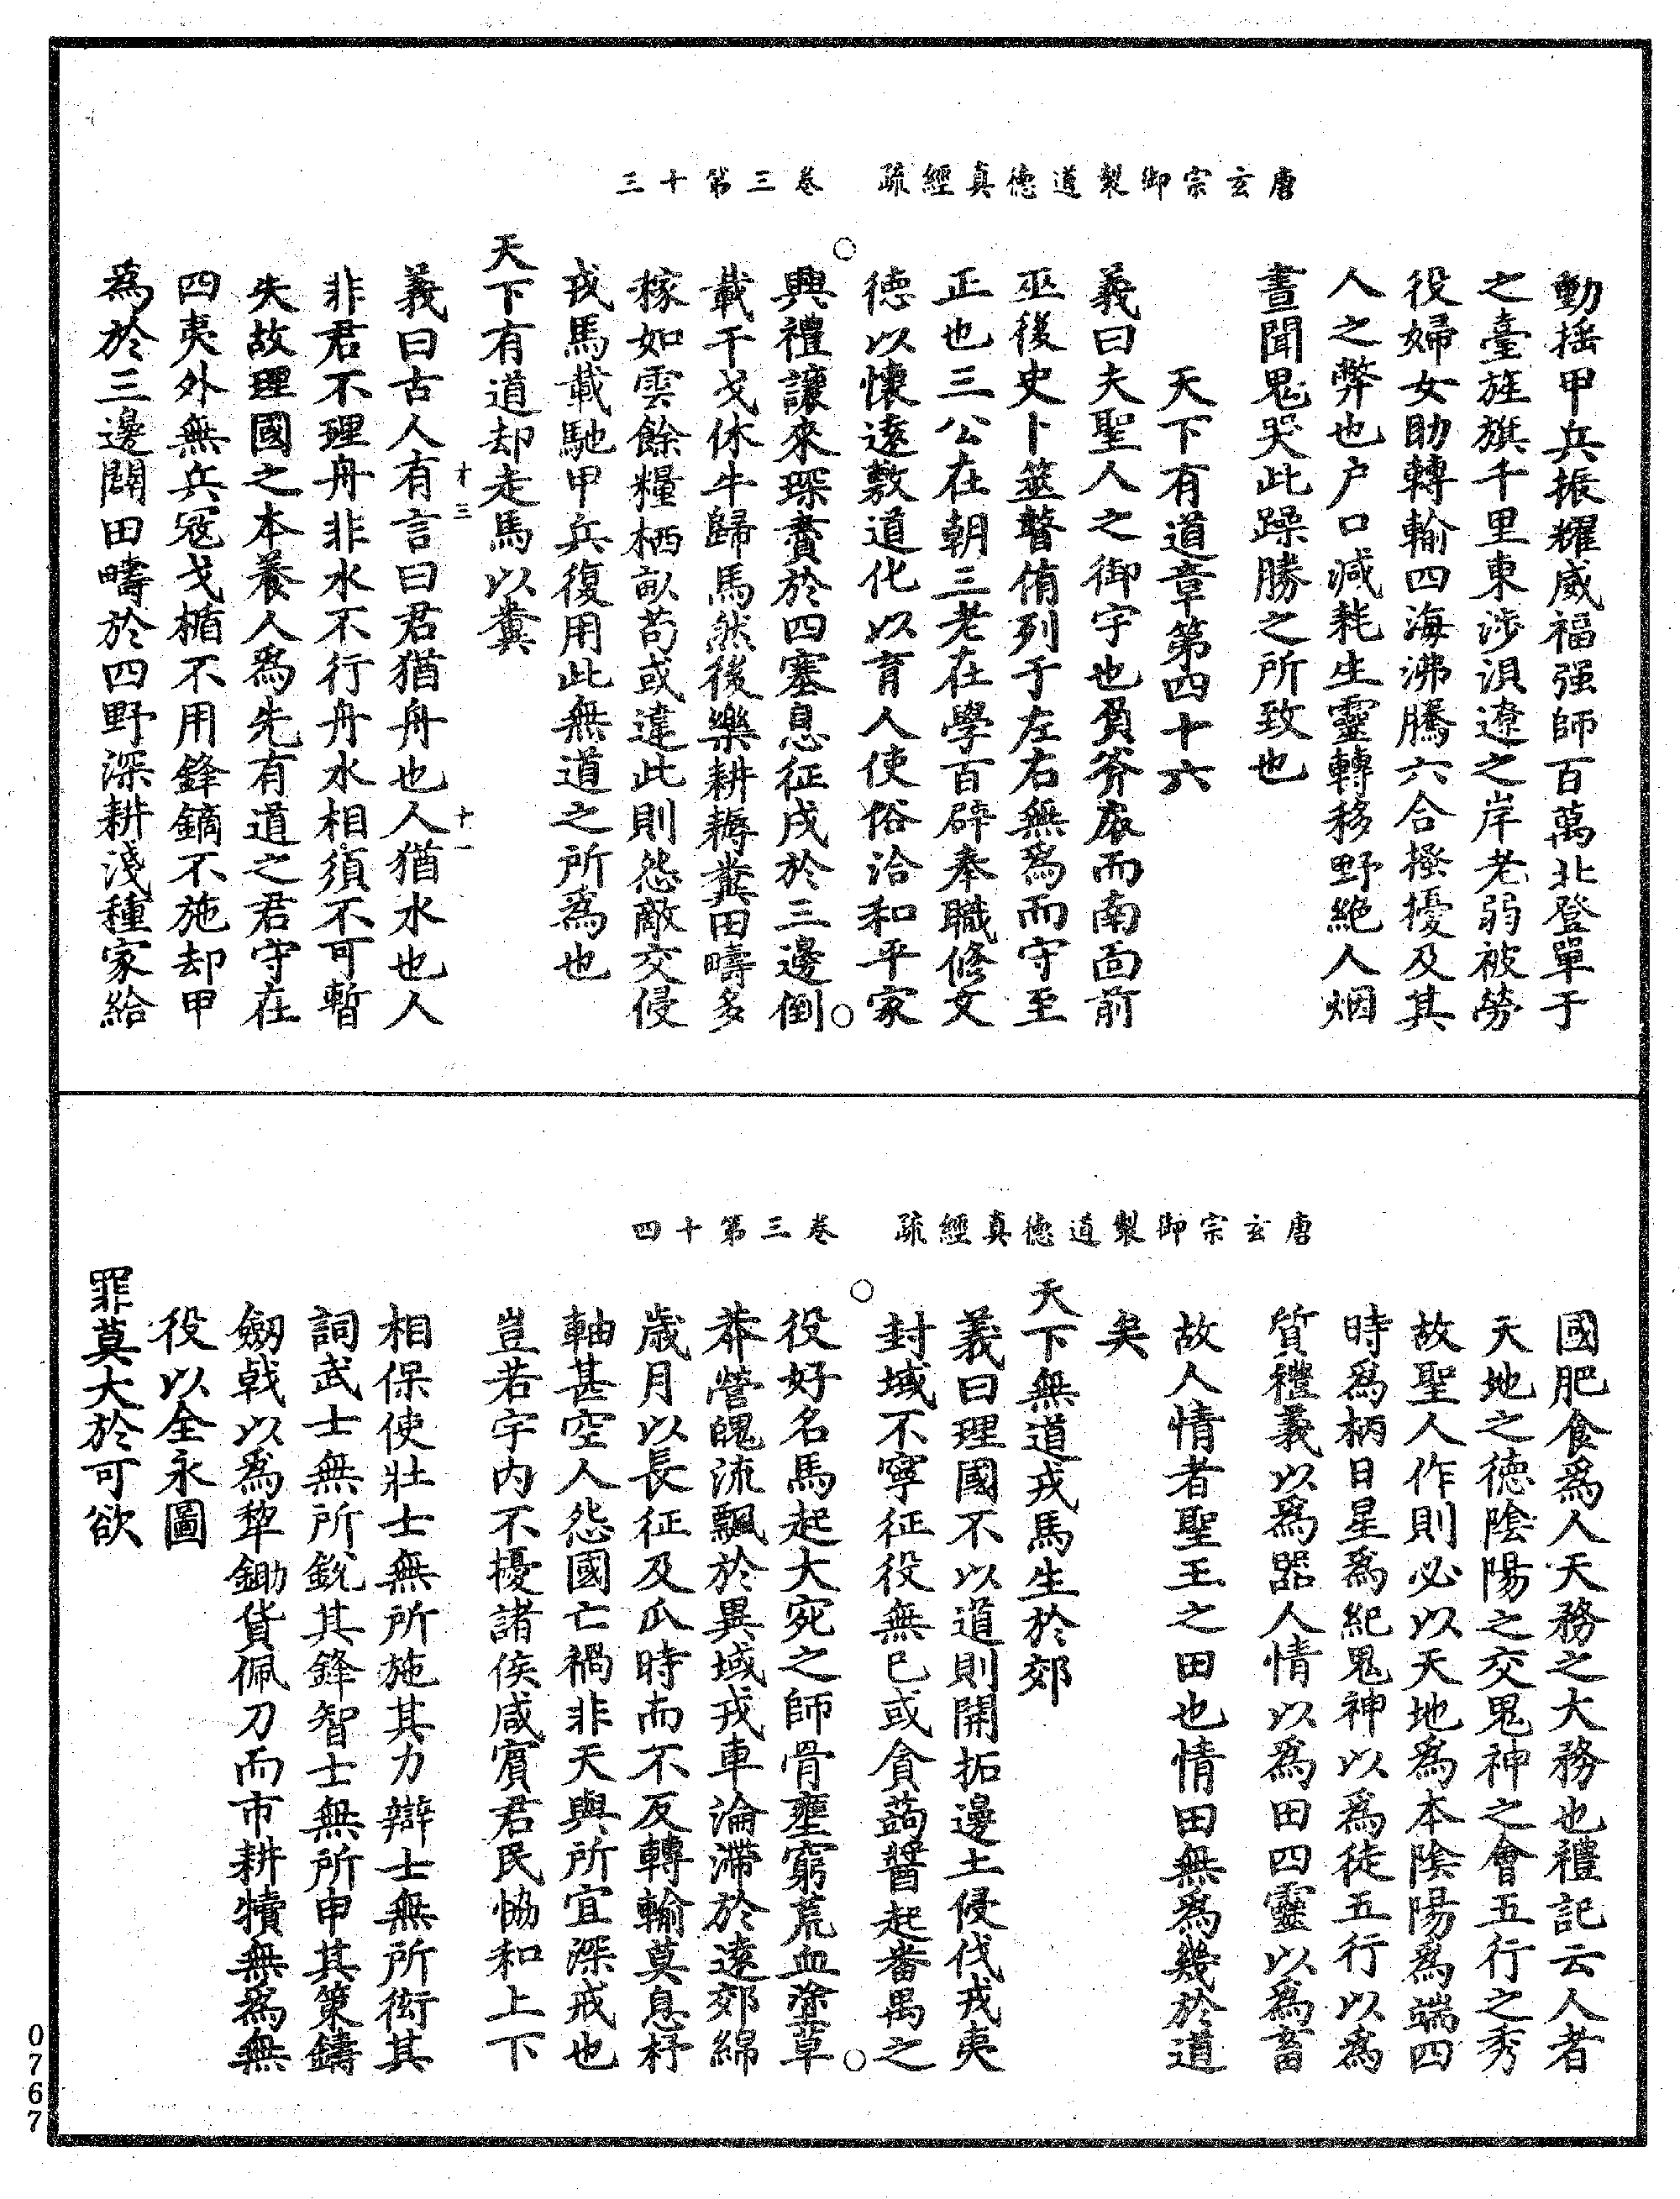 唐玄宗御製道德真經疏　卷三第十三
動搖甲兵振耀威福强師百萬北登單于
之臺旌旗千里東涉浿遼之岸老弱被勞
役婦女助轉輸四海沸騰六合搔擾及其
人之弊也户口減耗生靈轉移野絶人烟
晝聞鬼哭此躁勝之所致也
天下有道章第四十六
義曰夫聖人之御宇也負斧扆而南面前
巫後史卜筮瞽侑列于左右無爲而守至
正也三公在朝三老在學百辟奉職修文
德以懷遠敷道化以育人使俗洽和平家
興禮讓來琛賮於四塞息征戍於三邊倒
載干戈休牛歸馬然後樂耕耨糞田疇多
稼如雲餘糧栖畝苟或違此則怨敵交侵
戎馬載馳甲兵復用此無道之所爲也
天下有道却走馬以糞
十三
十一
義曰古人有言曰君猶舟也人猶水也人
非君不理舟非水不行舟水相須不可暫
失故理國之本養人爲先有道之君守在
四夷外無兵寇戈楯不用鋒鏑不施却甲
爲於三邊闢田疇於四野深耕淺種家給
唐玄宗御製道德真經疏　卷三第十四
國肥食爲人天務之大務也禮記云人者
天地之德陰陽之交鬼神之會五行之秀
故聖人作則必以天地爲本陰陽爲端四
時爲柄日星爲紀鬼神以爲徒五行以爲
質禮義以爲器人情以爲田四靈以爲畜
故人情者聖王之田也情田無爲幾於道
矣
天下無道戎馬生於郊
義曰理國不以道則開拓邊土侵伐戎夷
封域不寧征役無已或貪蒟醬起番禺之
役好名馬起大宛之師骨壅窮荒血塗草
莽營魄流飄於異域戎車淪滯於遠郊綿
歲月以長征及瓜時而不反轉輸莫息杼
軸甚空人怨國亡禍非天與所宜深戒也
豈若宇内不擾諸侯咸賓君民恊和上下
相保使壯士無所施其力辯士無所衒其
詞武士無所銳其鋒智士無所申其策鑄
劔戟以爲犂鋤貨佩刀而市耕犢無爲無
役以全永圖
罪莫大於可欲
0767